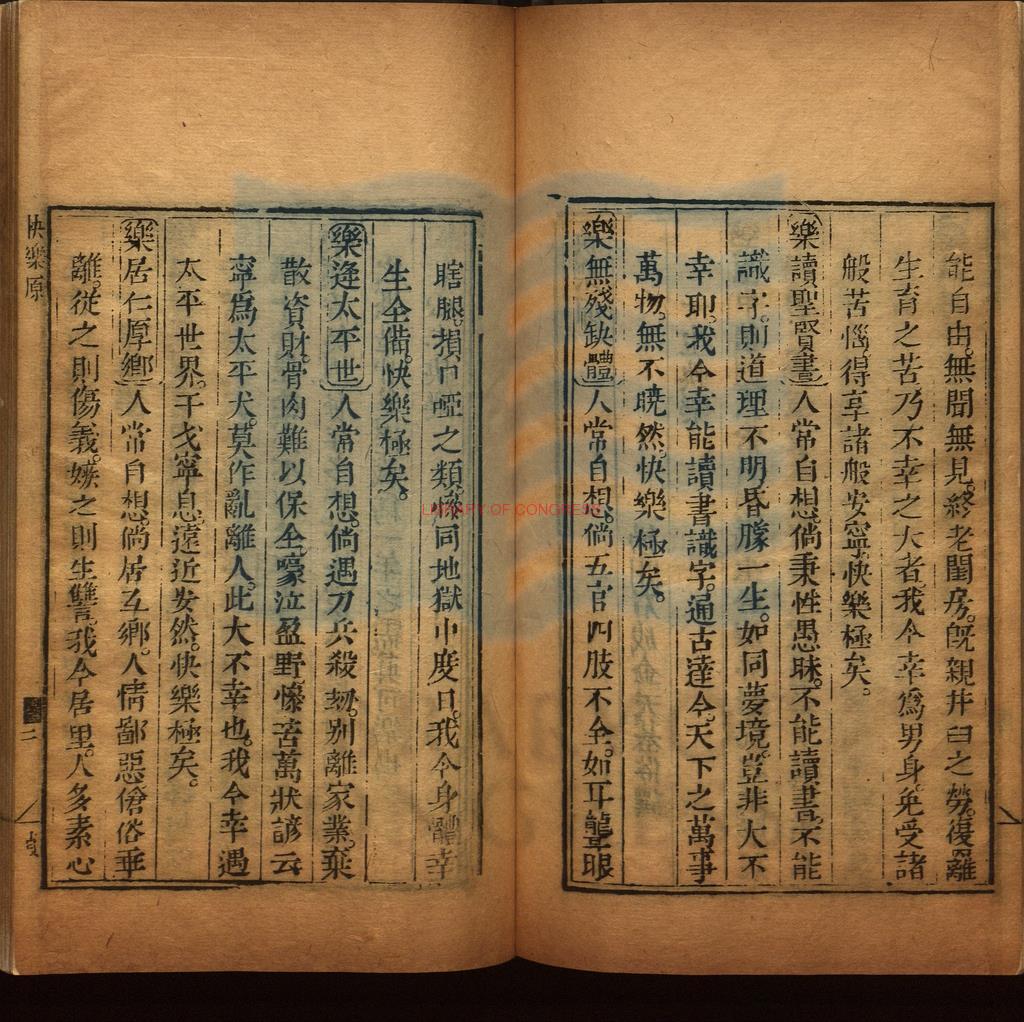 能自由。無聞無見。終老閨房。既親井臼之勞。復罹
生育之苦。乃不幸之大者。我今幸爲男身。免受諸
般苦惱。得享諸般安寧。快樂極矣。
樂讀聖賢書 人常自想。倘秉性愚昧。不能讀書。不能
識字。則道理不明。昏朦一生。如同夢境。豈非大不
幸耶。我今幸能讀書識字。通古達今。天下之萬事
萬物。無不曉然。快樂極矣。
樂無殘缺體 人常自想。倘五官四肢不全。如耳聾眼
瞎腿損口啞之類。儼同地獄中度日。我今身體幸
生全備。快樂極矣。
樂逢太平世 人常自想。倘遇刀兵殺刼。别離家業。棄
散資財。骨肉難以保全。嚎泣盈野。慘苦萬狀。諺云
寧爲太平犬。莫作亂離人。此大不幸也。我今幸遇
太平世界。干戈寧息。遠近安然。快樂極矣。
樂居仁厚鄉 人常自想。倘居互鄉。人情鄙惡。傖俗乖
離。從之則傷義。嫉之則生讐。我今居里。人多素心
快樂原
二
LIBRARY OF CONGRESS